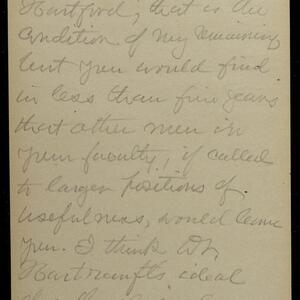 Hartford, that is the
condition of my remaining
but you would find
in less than five years
that other men in
your faculty, if called
to larger positions of
usefulness, would leave
you. I think Dr.
Hartranft's ideal